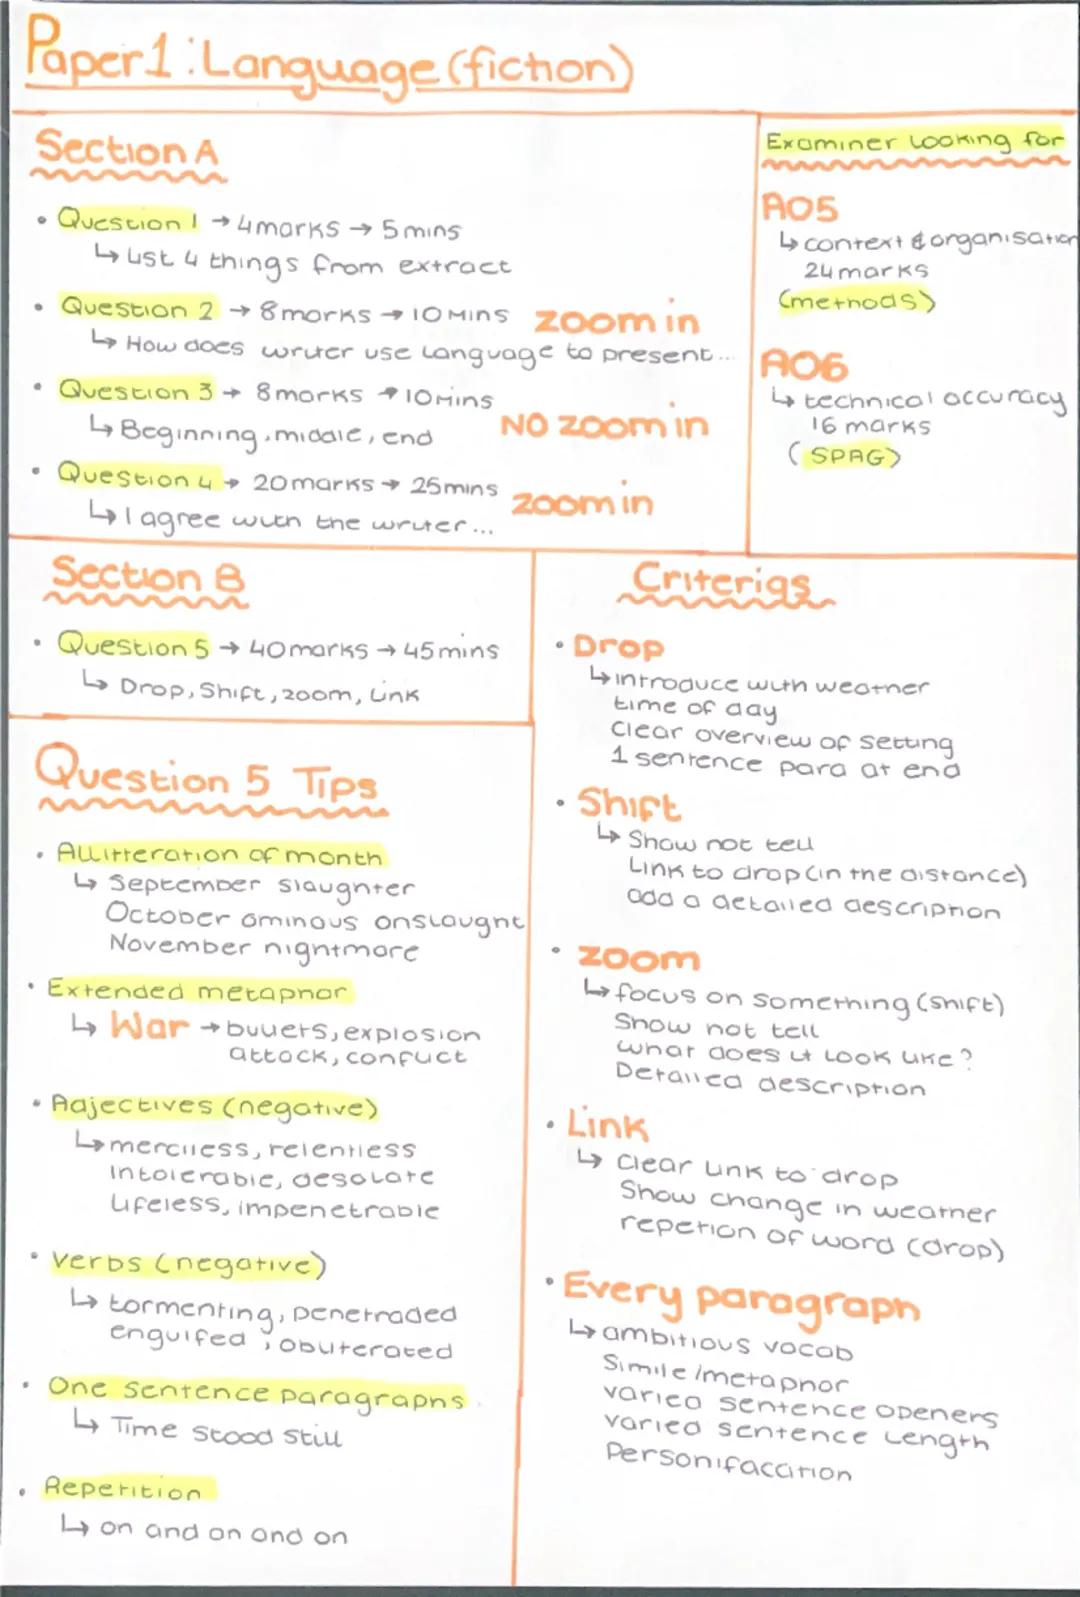 Paper 1: Language (fiction)
Section A
• Question 1 → 4 marks → 5 mins
↳ List 4 things from extract
• Question 2 → 8 marks → 10 mins zoom in
↳ How does writer use language to present...
• Question 3 → 8 marks → 10 mins
↳ Beginning, middle, end NO zoom in
• Question 4 → 20 marks → 25 mins
zoom in
↳ I agree with the writer...
Examiner looking for
AO5
↳ context & organisation
24 marks
(methods)
AO6
↳ technical accuracy
16 marks
(SPAG)
Section B
• Question 5 → 40 marks → 45 mins
↳ Drop, Shift, zoom, Link
Question 5 Tips
• Allitteration of month
↳ September slaughter
October ominous onslaught
November nightmare
• Extended metaphor
↳ War → bullets, explosion
attack, conflict
• Adjectives (negative)
↳ merciless, relentless
intolerable, desolate
lifeless, impenetrable
• Verbs (negative)
↳ tormenting, penetraded
engulfed, obliterated
• One sentence paragraphs
↳ Time stood still
• Repetition
↳ on and on and on
Criterias
• Drop
↳ introduce with weather
time of day
Clear overview of setting
1 sentence para at end
• Shift
↳ Show not tell
Link to drop (in the distance)
add a detailed description
• zoom
↳ focus on something (shift)
Show not tell
what does it look like?
Detailed description
• Link
↳ Clear link to drop
Show change in weather
repetion of word (drop)
• Every paragraph
↳ ambitious vocab
Simile/metaphor
varied sentence openers
varied sentence length
Personifacation